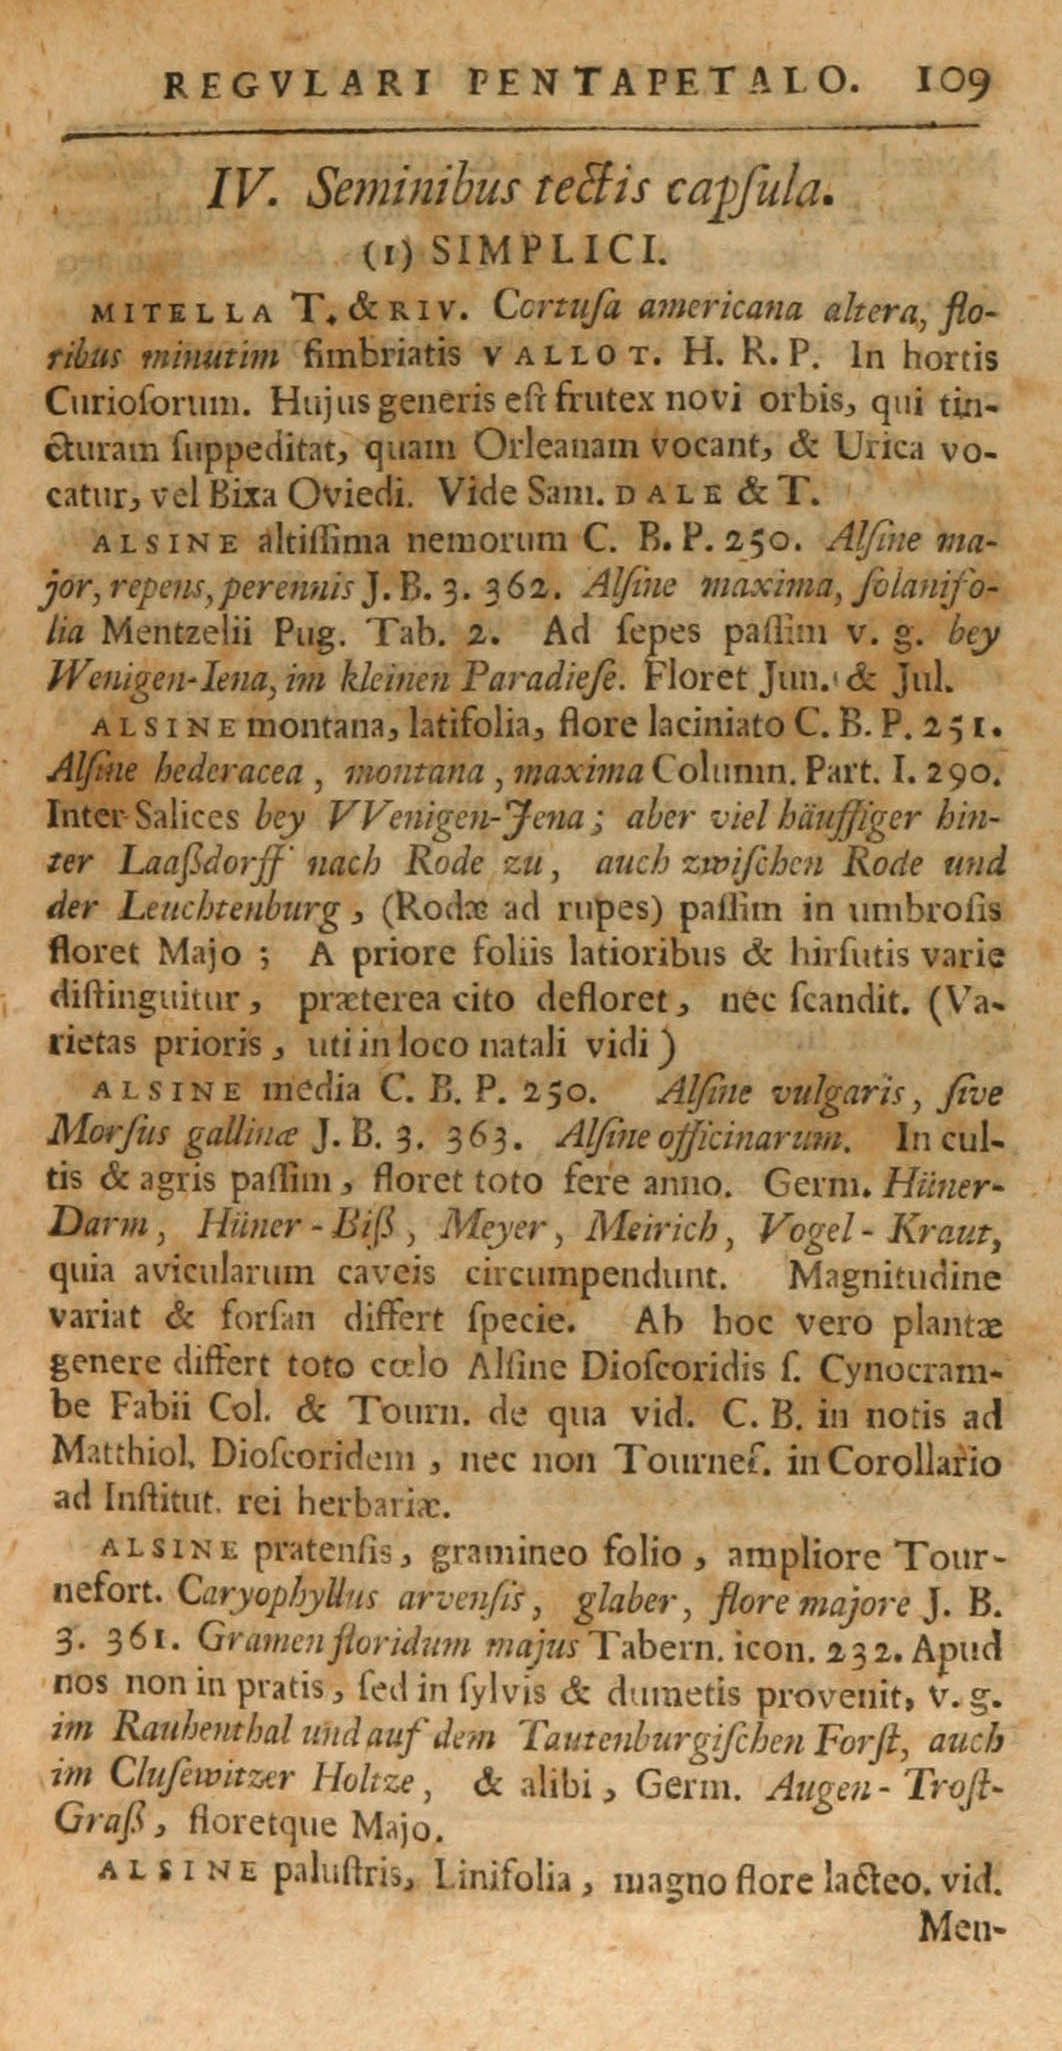 REGVLARI PENTAPETALO. 109
IV. Seminibus tectis capſula.
(1) SIMPLICI.
MITELLA T. & RIV. Cortuſa americana altera, flo-
ribus minutim fimbriatis VALLOT. H. R. P. In hortis
Curioſorum. Hujus generis eſt frutex novi orbis, qui tin-
cturam ſuppeditat, quam Orleanam vocant, & Urica vo-
catur, vel Bixa Oviedi. Vide Sam. DALE & T.
ALSINE altiſſima nemorum C. B. P. 250. Alſine ma-
jor, repens, perennis J. B. 3. 362. Alſine maxima, ſolanifo-
lia Mentzelii Pug. Tab. 2. Ad ſepes paſſim v. g. bey
Wenigen-Iena, im kleinen Paradieſe. Floret Jun. & Jul.
ALSINE montana, latifolia, flore laciniato C. B. P. 251.
Alſine hederacea, montana, maxima Column. Part. I. 290.
Inter Salices bey VVenigen-Jena; aber viel häuffiger hin-
ter Laaßdorff nach Rode zu, auch zwiſchen Rode und
der Leuchtenburg, (Rodæ ad rupes) paſſim in umbroſis
floret Majo; A priore foliis latioribus & hirſutis varie
diſtinguitur, præterea cito defloret, nec ſcandit. (Va-
rietas prioris, uti in loco natali vidi)
ALSINE media C. B. P. 250. Alſine vulgaris, ſive
Morſus gallinæ J. B. 3. 363. Alſine officinarum. In cul-
tis & agris paſſim, floret toto fere anno. Germ. Hüner-
Darm, Hüner-Biß, Meyer, Meirich, Vogel-Kraut,
quia avicularum caveis circumpendunt. Magnitudine
variat & forſan differt ſpecie. Ab hoc vero plantæ
genere differt toto cœlo Alſine Dioſcoridis ſ. Cynocram-
be Fabii Col. & Tourn. de qua vid. C. B. in notis ad
Matthiol. Dioſcoridem, nec non Tournef. in Corollario
ad Inſtitut. rei herbariæ.
ALSINE pratenſis, gramineo folio, ampliore Tour-
nefort. Caryophyllus arvenſis, glaber, flore majore J. B.
3. 361. Gramen floridum majus Tabern. icon. 232. Apud
nos non in pratis, ſed in ſylvis & dumetis provenit, v. g.
im Rauhenthal und auf dem Tautenburgiſchen Forſt, auch
im Cluſewitzer Holtze, & alibi, Germ. Augen-Troſt-
Graß, floretque Majo.
ALSINE paluſtris, Linifolia, magno flore lacteo. vid.
Men-